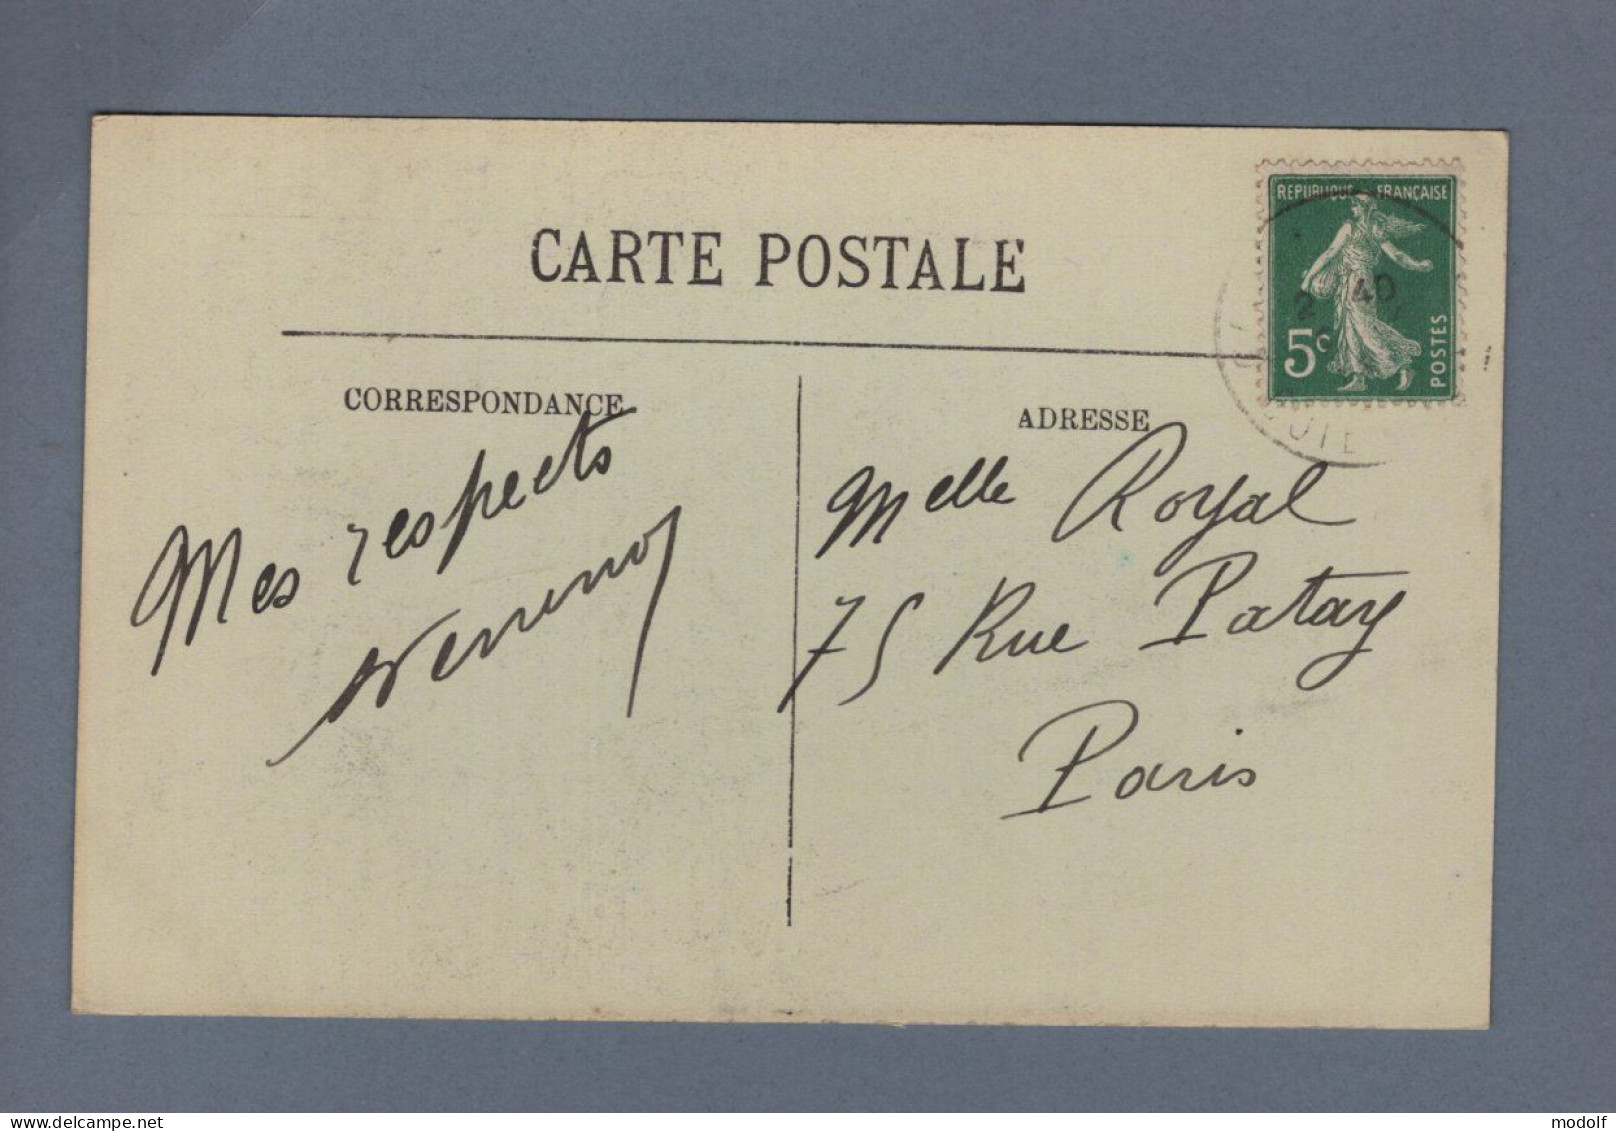 CARTE POSTALE
RÉPUBLIQUE FRANÇAISE
2 40
5c
POSTES
CORRESPONDANCE
Mes respects
ADRESSE
Melle Royal
75 Rue Patay
Paris
www.delcampe.net
modolf